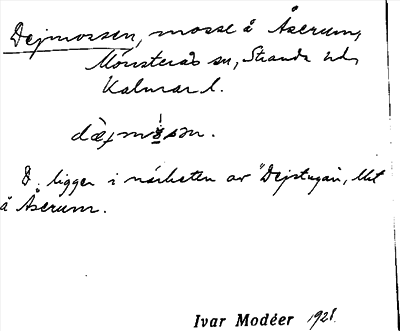 Dejmossen, mosse å Åserum,
Mönsterås sn, Stranda hd,
Kalmar l.
dæjmɔsən.
D. ligger i närheten av "Dejstugan, lht
å Åserum.
Ivar Modéer 1928.